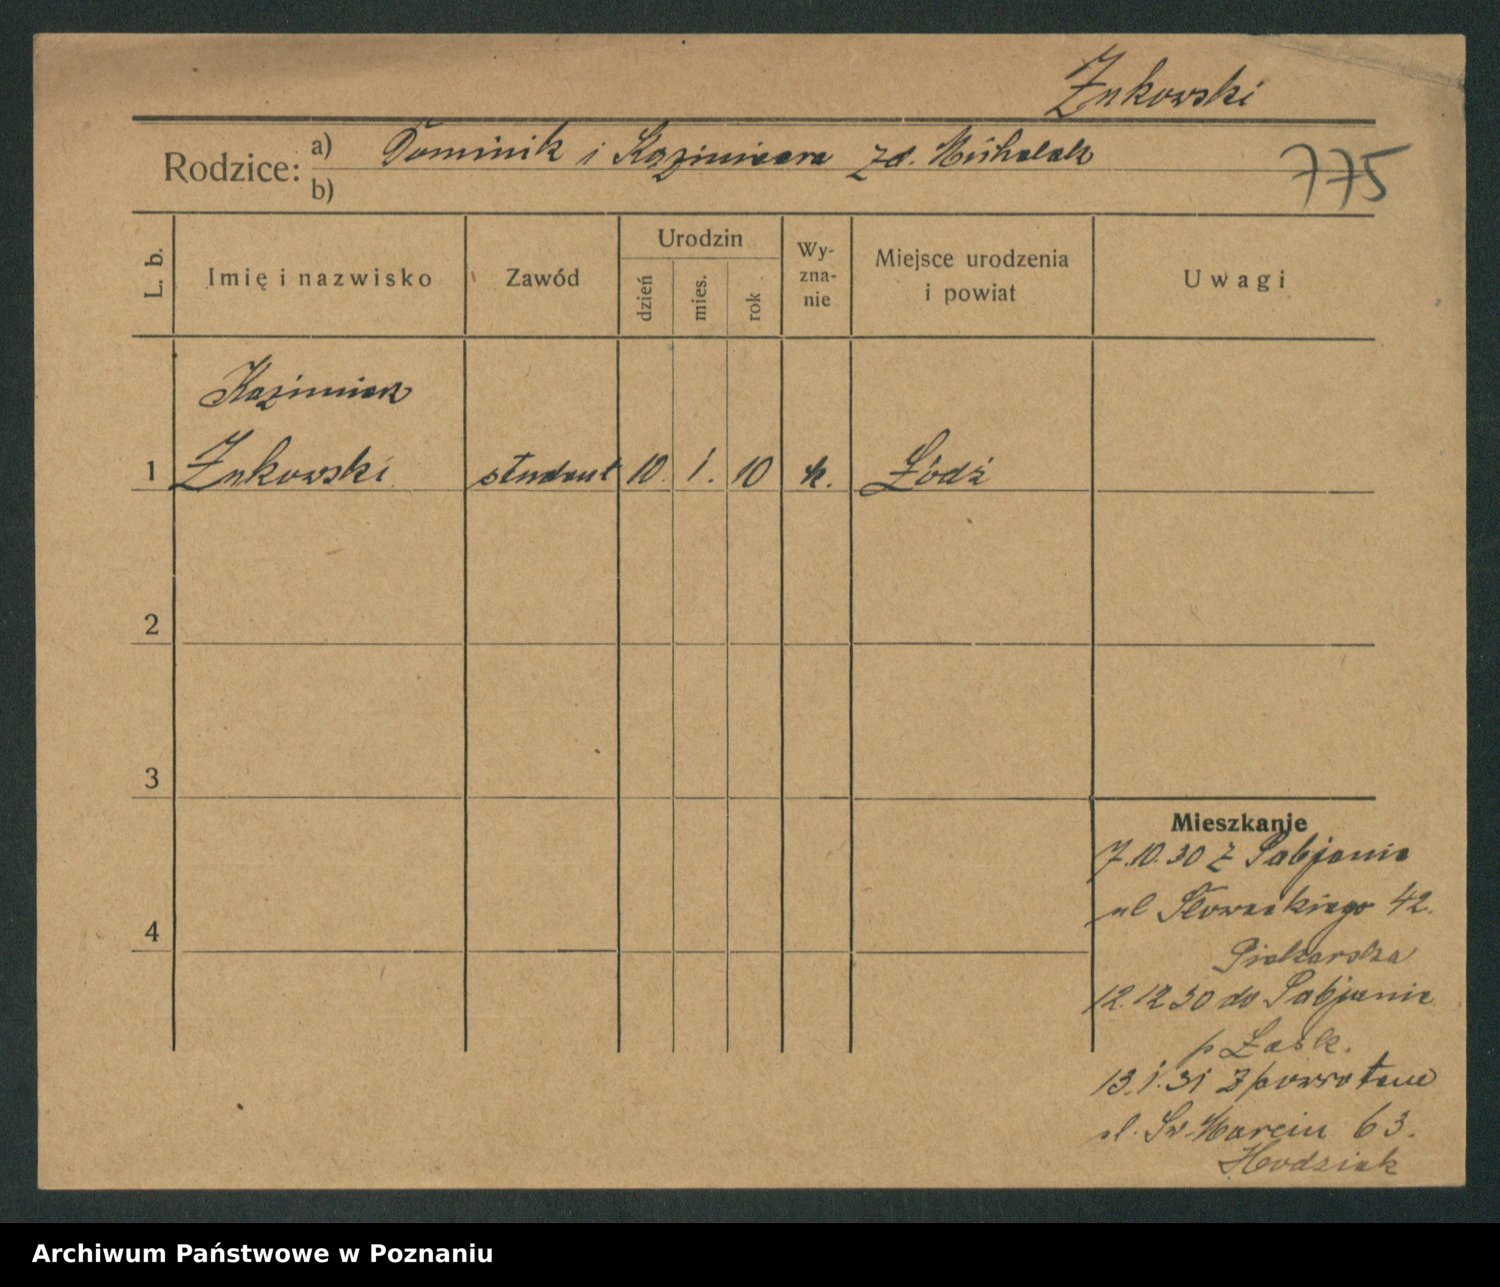 Żukowski
Rodzice: a) Dominik i Kazimiera zd. Michalak
b)
775
L. b.
Imię i nazwisko
Zawód
Urodzin
dzień
mies.
rok
Wy-
zna-
nie
Miejsce urodzenia
i powiat
Uwagi
Kazimierz
1 Żukowski student 10. 1. 10 k. Łódź
2
3
4
Mieszkanie
7.10.30 z Pabjanic
ul Słowackiego 42.
Piekarska
12.12 30 do Pabjanic
p Łask.
13.1.31 z powrotem
ul. Św Marcin 63.
Hodziak
Archiwum Państwowe w Poznaniu